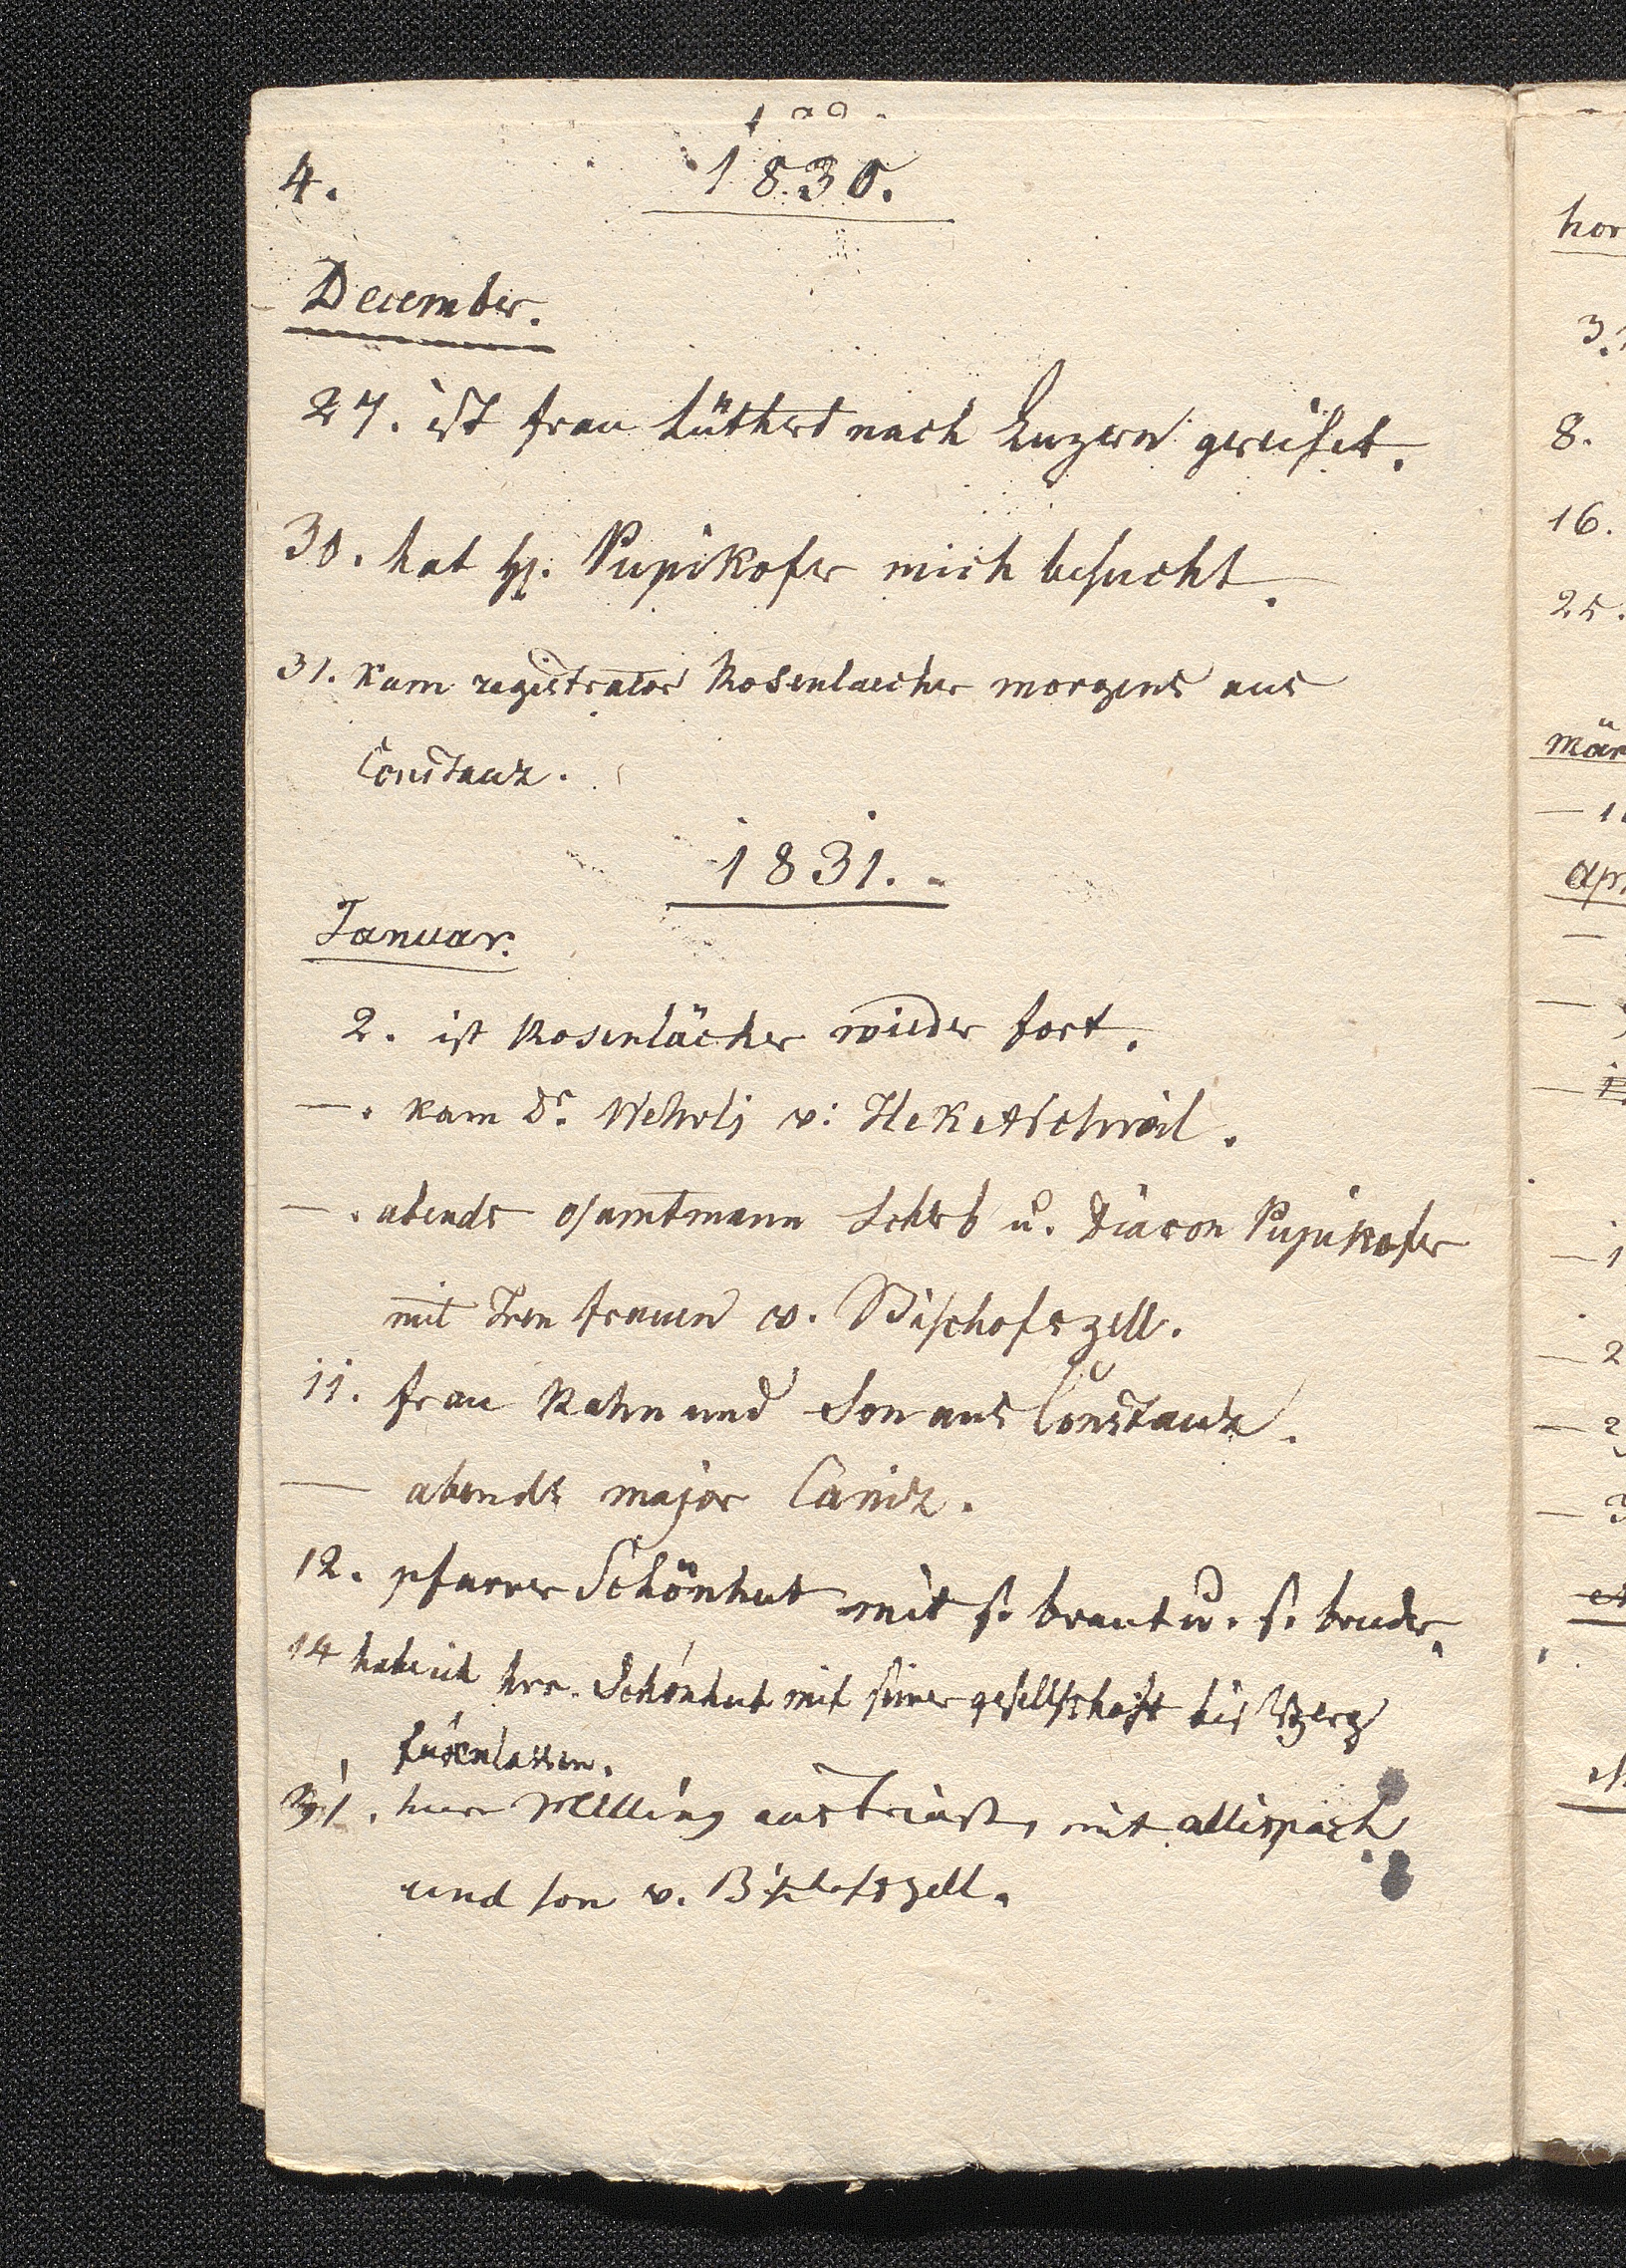 4. 1830.
December.
27. ist frau Lüthert nach Luzern gereiset.
30. hat H. Pupikofer mich besucht.
31. kam registrator Rosenlaecher morgens aus
Constanz.
1831.
Januar.
2. ist Rosenlächer wieder fort.
—. kam Dr. Wehrli v: Heketschwil.
—. abends Scherb u. Diacon Pupikofer
mit Iren frauen v. Bischofszell.
11. frau Rahn und Son aus Constanz.
— abends major Caniz.
12. pfarrer Schönhut mit s. braut u. s. bruder.
14 hab ich hrr. Schönhut mit seiner gesellschaft bis
füren lassen.
31. herr Welling aus mit allispach
und son v. Bischofszell.
hor
8.
16.
25.
mär